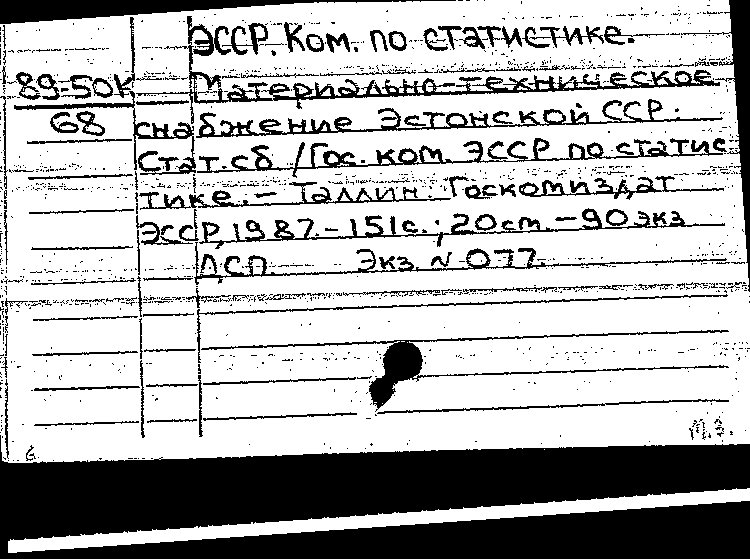 ЭССР. Ком. по статистике.
89-50К Материально-техническое
68 снабжение Эстонской ССР:
Стат. сб /Гос. ком. ЭССР по статис
тике. - Таллин: Госкомиздат
ЭССР, 1987. - 151с.; 20см. - 90экз
ДСП. Экз. N 077.
М.З.
6